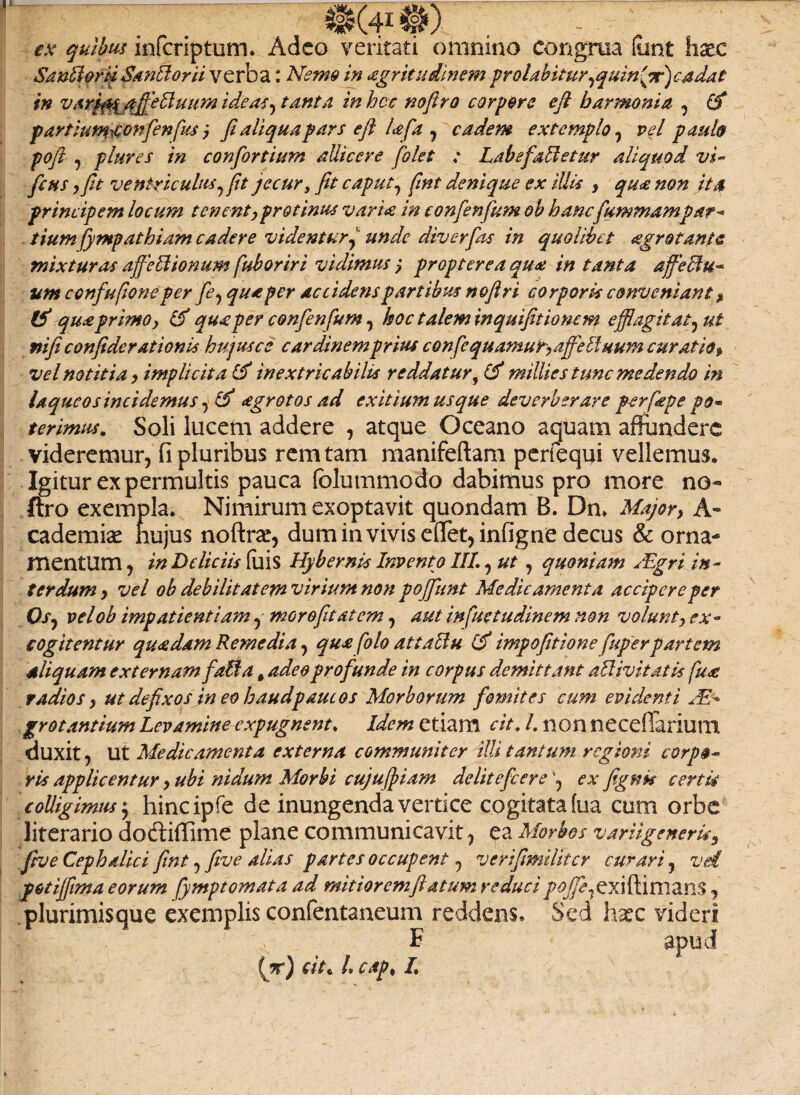 (41)
ex quibus inſcriptum. Adeo veritati omnino congrua ſunt hæc
Sanctorii Sanctorii verba: Nemo in ægritudinem prolabitur, quin(π) cadat
in varias affectuum ideas, tanta in hoc noſtro corpore eſt harmonia, &
partium conſenſus; ſi aliqua pars eſt læſa, eadem extemplo, vel paulo
poſt, plures in conſortium allicere ſolet: Labefactetur aliquod vi-
ſcus, ſit ventriculus, ſit jecur, ſit caput, ſint denique ex illis, quæ non ita
principem locum tenent, protinus variæ in conſenſum ob hanc ſummam par-
tium ſympathiam cadere videntur, unde diverſas in quolibet ægrotante
mixturas affectionum ſuboriri vidimus; propterea quæ in tanta affectu-
um confuſione per ſe, quæ per accidens partibus noſtri corporis conveniant,
& quæ primo, & quæ per conſenſum, hoc talem inquiſitionem efflagitat, ut
niſi conſiderationis hujusce cardinem prius conſequamur, affectuum curatio,
vel notitia, implicita & inextricabilis reddatur, & millies tunc medendo in
laqueos incidemus, & ægrotos ad exitium usque deverberare perſæpe po-
terimus. Soli lucem addere, atque Oceano aquam affundere
videremur, ſi pluribus rem tam manifeſtam perſequi vellemus.
Igitur ex permultis pauca ſolummodo dabimus pro more no-
ſtro exempla. Nimirum exoptavit quondam B. Dn. Major, A-
cademiæ hujus noſtræ, dum in vivis eſſet, inſigne decus & orna-
mentum, in Deliciis ſuis Hybernis Invento III., ut, quoniam Ægri in-
terdum, vel ob debilitatem virium non poſſunt Medicamenta accipere per
Os, vel ob impatientiam, moroſitatem, aut inſuetudinem non volunt, ex-
cogitentur quædam Remedia, quæ ſolo attactu & impoſitione ſuper partem
aliquam externam facta, adeo profunde in corpus demittant activitatis ſuæ
radios, ut defixos in eo haud paucos Morborum fomites cum evidenti Æ-
grotantium Levamine expugnent. Idem etiam cit. l. non neceſſarium
duxit, ut Medicamenta externa communiter illi tantum regioni corpo-
ris applicentur, ubi nidum Morbi cujuſpiam deliteſcere, ex ſignis certis
colligimus; hinc ipſe de inungenda vertice cogitata ſua cum orbe
literario doctiſſime plane communicavit, ea Morbos varii generis,
ſive Cephalici ſint, ſive alias partes occupent, veriſimiliter curari, vel
potiſſima eorum ſymptomata ad mitiorem ſtatum reduci poſſe, exiſtimans,
plurimisque exemplis conſentaneum reddens. Sed hæc videri
F apud
(π) cit. l. cap. I.